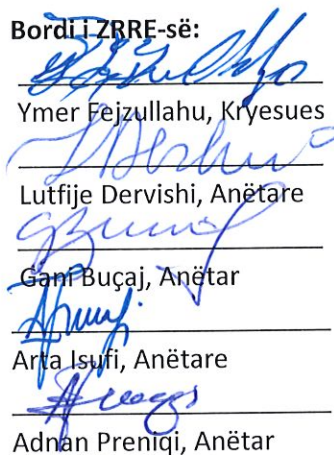 Bordi i ZRRE-së:
Ymer Fejzullahu, Kryesues
Lutfije Dervishi, Anëtare
Gani Buçaj, Anëtar
Arta Isufi, Anëtare
Adnan Preniqi, Anëtar